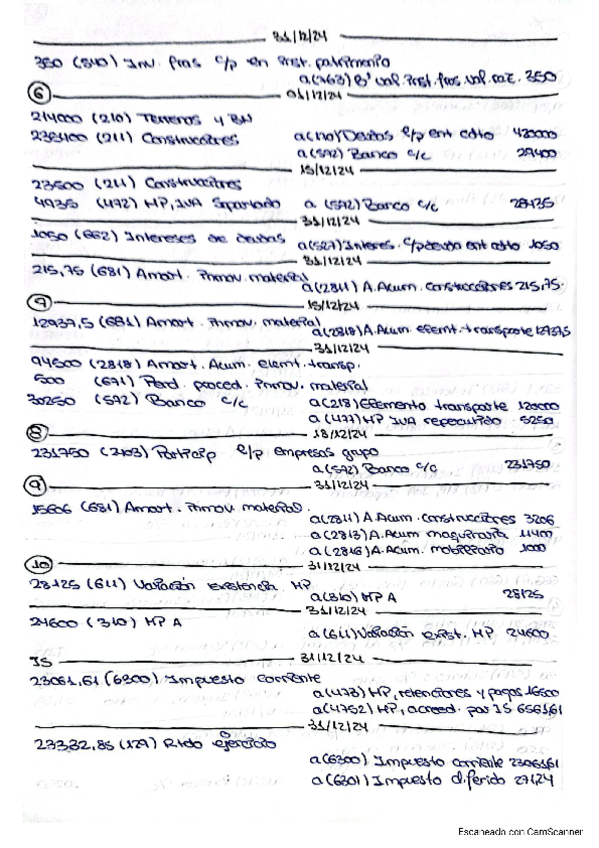 31/12/24
350 (540) Inv. fras c/p en inst. patrimonio
a (763) Bº val. inst. fras val. raz. 350
6 01/12/24
214000 (210) Terrenos y BN
235400 (211) Construcciones a (170) Deudas l/p ent cdto 420000
a (572) Banco c/c 29400
15/12/24
23500 (211) Construcciones
4935 (472) HP, IVA Soportado a (572) Banco c/c 28435
31/12/24
1050 (662) Intereses de deudas a (527) Interes. c/p deuda ent cdto 1050
31/12/24
215,75 (681) Amort. Inmov. material
a (2811) A. Acum. construcciones 215,75.
7 15/12/24
12937,5 (681) Amort. Inmov. material
a (2818) A. Acum. elemt. transporte 12937,5
31/12/24
94500 (2818) Amort. Acum. elemt. transp.
500 (671) Perd. proced. Inmov. material
30250 (572) Banco c/c a (218) Elemento transporte 120000
a (477) HP IVA repercutido 5250
8 18/12/24
231750 (2403) Particip l/p empresas grupo
a (572) Banco c/c 231750
9 31/12/24
15606 (681) Amort. Inmov. material.
a (2811) A. Acum. construcciones 3206
a (2813) A. Acum. maquinaria 11400
a (2816) A. Acum. mobiliario 1000
10 31/12/24
28125 (611) Variación existencia MP
a (310) MP A 28125
31/12/24
24600 (310) MP A
a (611) Variación exist. MP 24600
IS 31/12/24
23061,61 (6300) Impuesto corriente
a (473) HP, retenciones y pagos 16500
a (4752) HP, acreed. por IS 6561,61
31/12/24
23332,85 (129) Rtdo ejercicio
a (6300) Impuesto corriente 23061,61
a (6301) Impuesto diferido 271,24
Escaneado con CamScanner